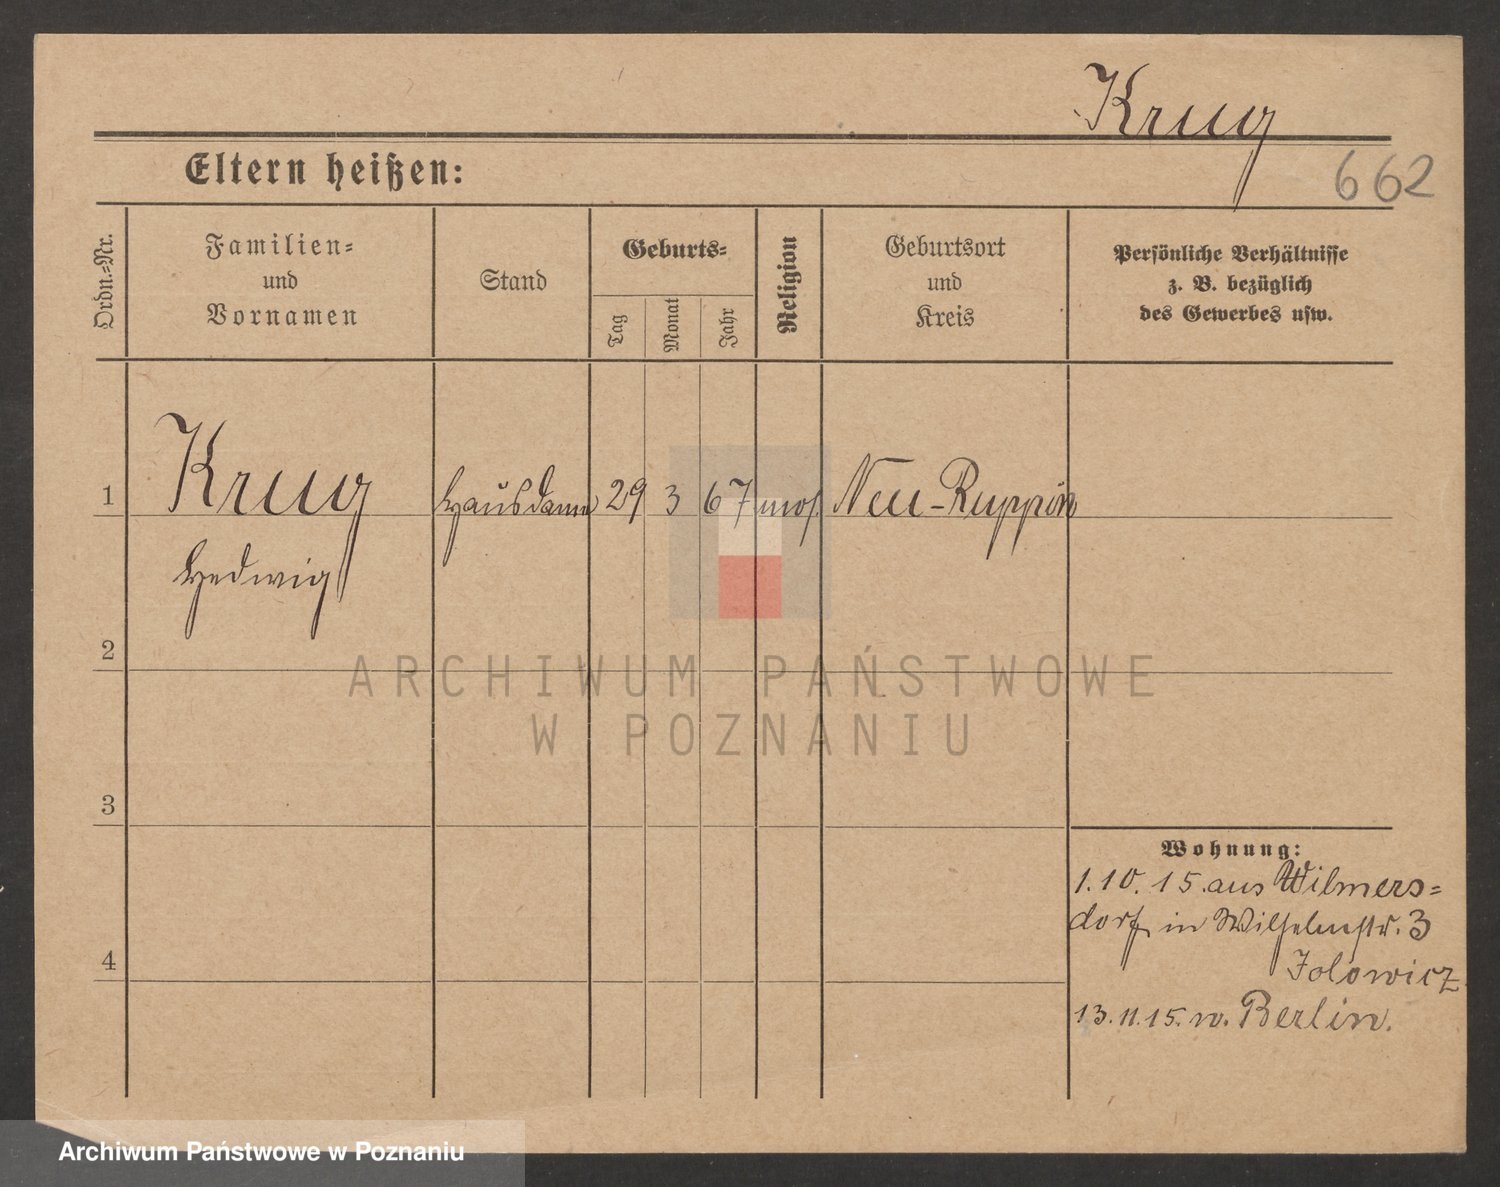 Krug
662
Eltern heißen:
Ordn.=Nr.
Familien=
und
Vornamen
Stand
Geburts=
Tag
Monat
Jahr
Religion
Geburtsort
und
Kreis
Persönliche Verhältnisse
z. B. bezüglich
des Gewerbes usw.
1
Krug
Hausdame
29
3
67
mos.
Neu-Ruppin
Hedwig
2
3
4
Wohnung:
1.10.15. aus Wilmers=
dorf in Wilhelmstr. 3
Jolowicz
13.11.15. n. Berlin.
ARCHIWUM PAŃSTWOWE
W POZNANIU
Archiwum Państwowe w Poznaniu